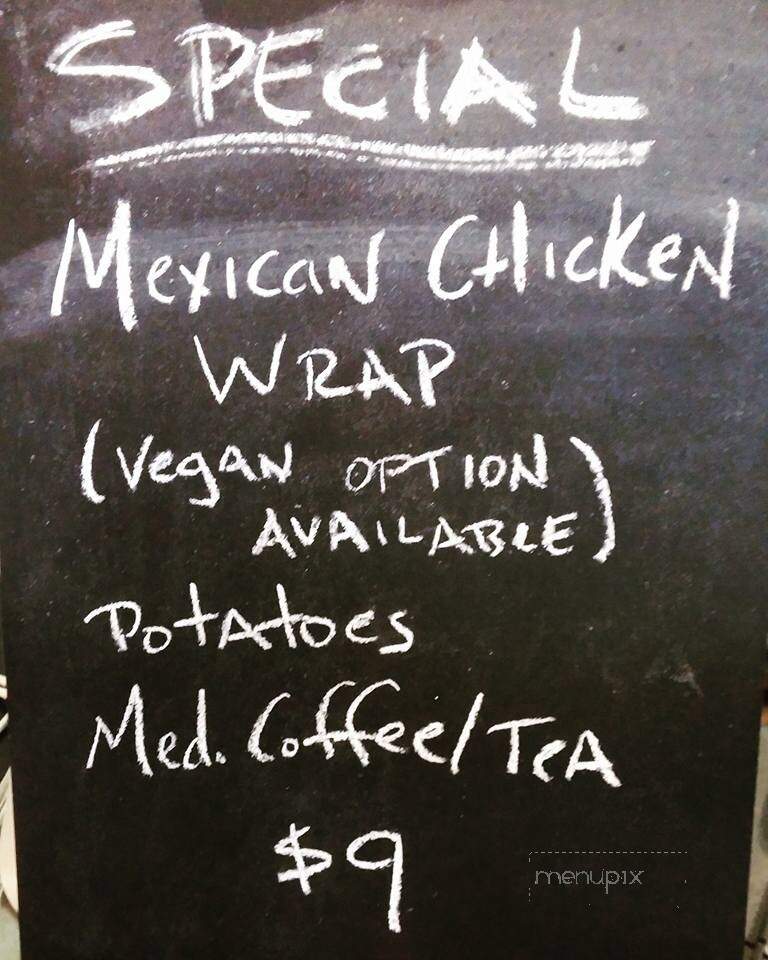 SPECIAL
Mexican Chicken
WRAP
(Vegan OPTION
AVAILABLE)
Potatoes
Med. Coffee/Tea
$9
menupix